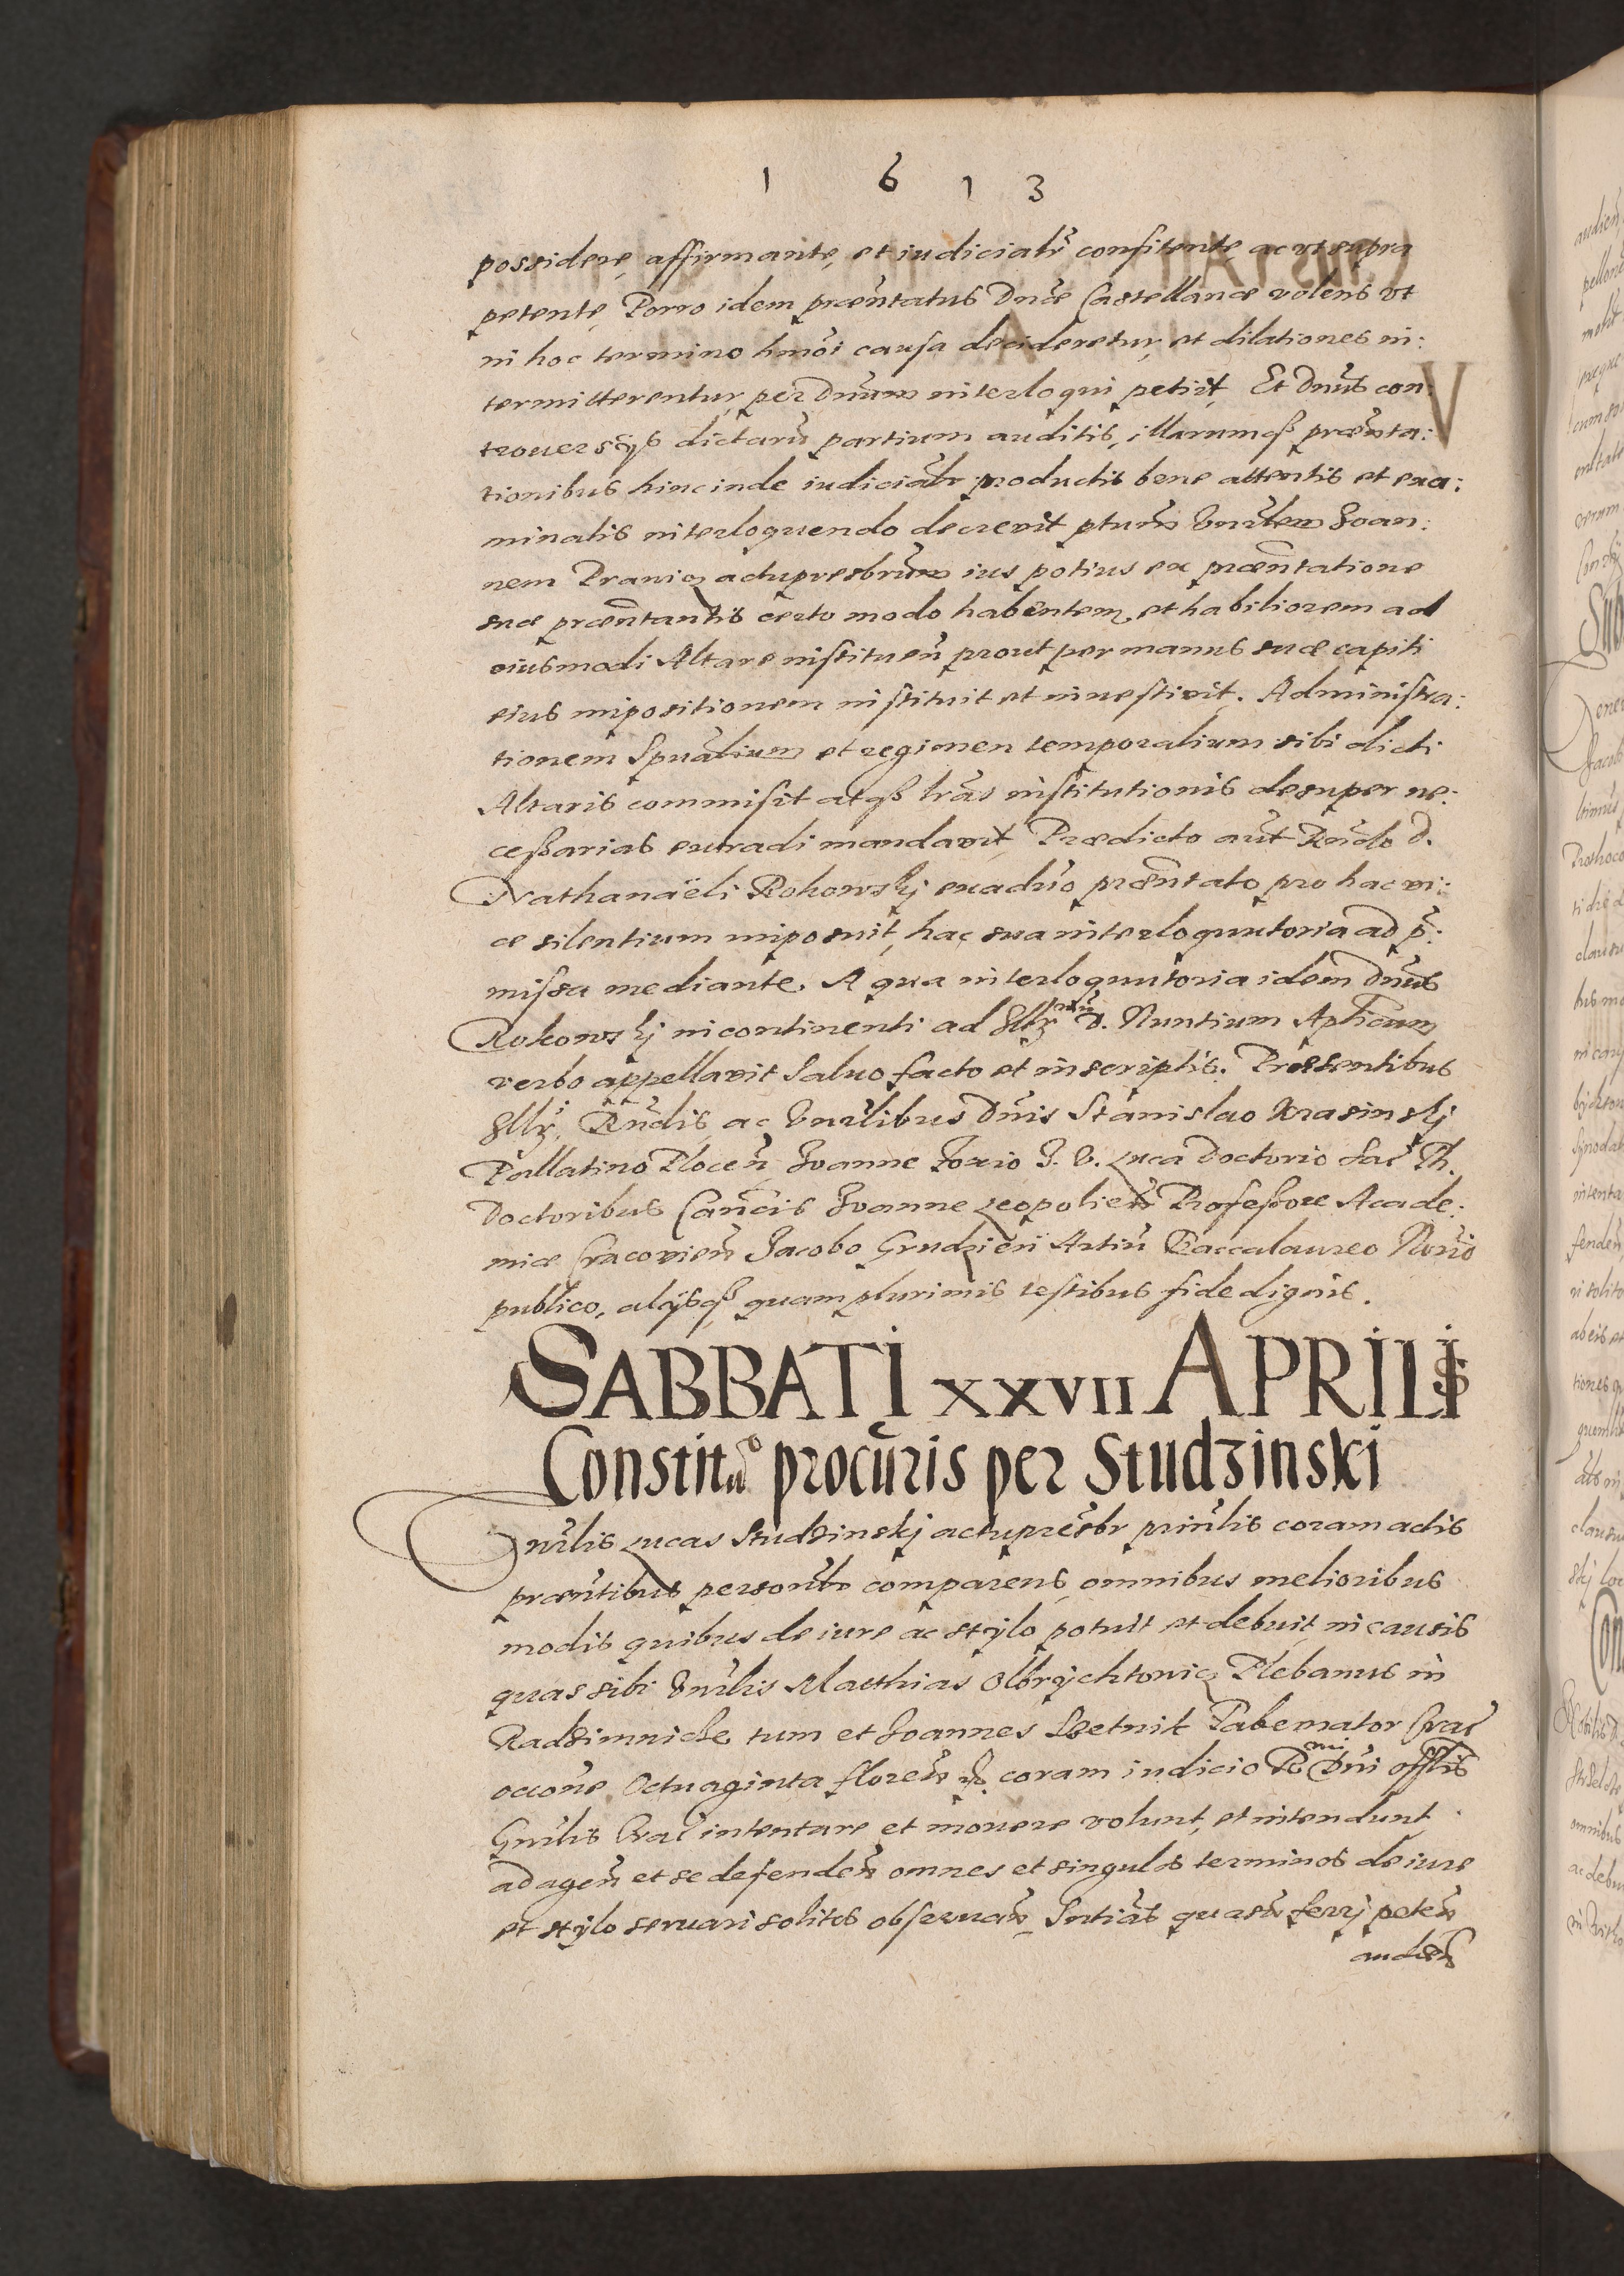 1 6 1 3
possidere, affirmante, et iudicialr̃ confitente, ac vt supra
petente, Porro idem præñtatus Dnæ Castellanæ volens vt
in hoc termino hm̃oi causa decideretur, et dilationes in:
termitterentur, per Dnũm interloqui petijt, Et Dnũs con:
trouersijs dictarũ partium auditis, illarumqȝ præñta:
tionibus hincinde iudicialr̃ productis bene attentis et exa:
minatis interloquendo decreuit ptum̃ Vnrlem Joan:
nem Pranicz actupresbrum̃ ius potius ex præñtatione
suæ præñtantis certo modo habentem, et habiliorem ad
eiusmodi Altare instituen̄ prout per manus suæ capiti
eius impositionem instituit et inuestiuit. Administra:
tionem Spual̃ium et regimen temporalium sibi dicti
Altaris commisit atqȝ lrãs institutionis desuper ne:
cessarias extradi mandauit, Prædicto aũt Rñdo D.
Nathanaëli Rokowskj exaduo præñtato pro hac vi:
ce silentium imposuit, hac sua interloquutoria ad p̃:
missa mediante. A qua interloquutoria idem Dnũs
Rokowskj incontinenti ad Illr̃ mũ D. Nuntium Aplicum̃
verbo appellauit saluo facto et in scriptis. Præsentibus
Illr̃, Rñdis, ac Vnrlibus Dnis Stanislao Krasinskj
Pallatino Plocen̄, Joanne Foxio J. V. Luca Doctorio Sac̃ Th.
Doctoribus Canc̃is Joanne Leopolien̄ Professore Acade:
miæ Cracouien̄ Jacobo Grudzien̄ Artiũ Baccalaureo Nor̃io
publico, alijsqȝ quam plurimis testibus fide dignis.
SABBATI XXVII APRILIS
Constituo procuris per Studzinski
Vnrlis Lucas Studzinskj actupresbr̃ prinlis coram actis
præñtibus personlr̃ comparens, omnibus melioribus
modis quibus de iure ac stylo potuit et debuit, in causis
quas sibi Vnrlis Matthias Olbrychtowicz Plebanus in
Radzimnicze tum et Joannes Setnik Tabernator Crac̃
occone, Octuaginta floren̄ coram iudicio R mi Dñi offlis
Gnrlis Crac̃ intentare et mouere volunt, et intendunt
ad agen̄ et se defenden̄ omnes et singulos terminos de iure
et stylo seruari solitos obseruan̄ Sntiãs quasuis ferrj peten̄
audien̄